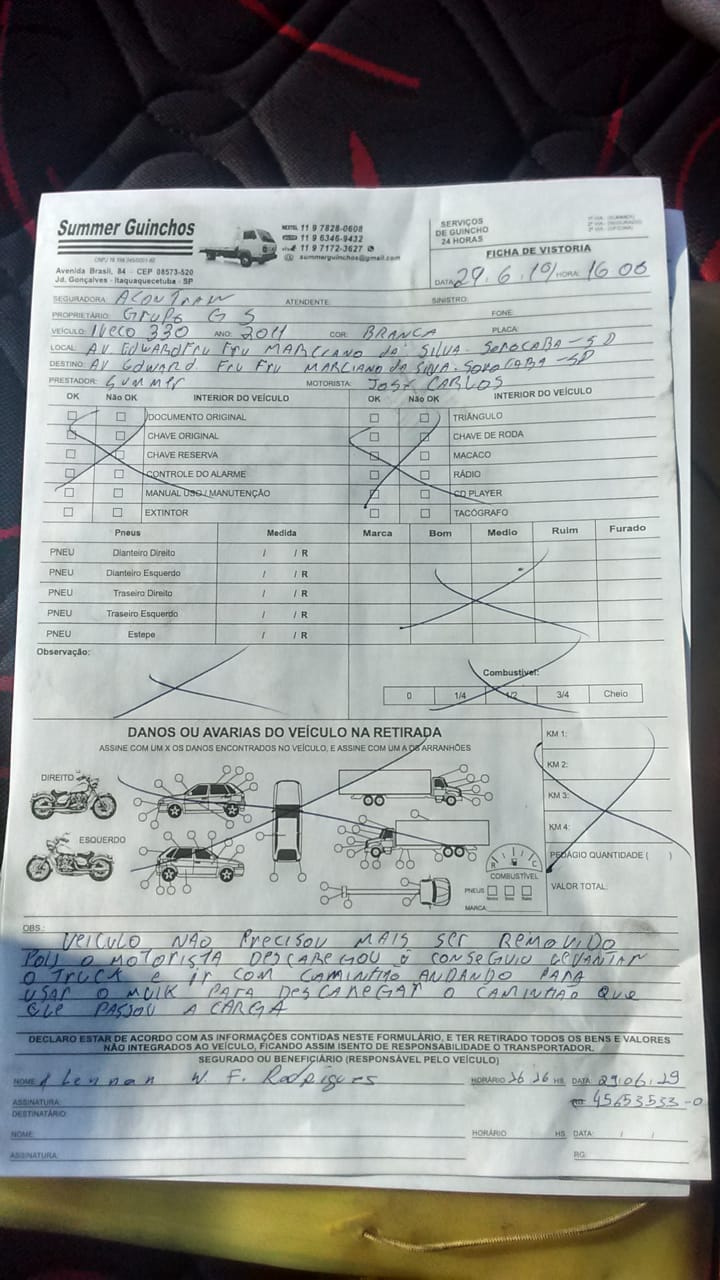 Summer Guinchos
11 9 7828-0608
11 9 6346-9432
11 9 7172-3627
summerguinchos@gmail.com
Avenida Brasil, 84 - CEP 08573-520
Jd. Gonçalves - Itaquaquecetuba - SP
SERVIÇOS
DE GUINCHO
24 HORAS
FICHA DE VISTORIA
DATA: 29.6.19 HORA: 16 00
SEGURADORA: ATENDENTE: SINISTRO:
PROPRIETÁRIO: Grupo G S FONE:
VEÍCULO: IVECO 330 ANO: 2011 COR: BRANCA PLACA:
LOCAL: AV EDWARD Fru Fru MARCIANO da SILVA - SOROCABA - SP
DESTINO: AV EDWARD. Fru Fru MARCIANO da SILVA - SOROCABA - SP
PRESTADOR: Summer MOTORISTA: JOSE CARLOS
OK Não OK INTERIOR DO VEÍCULO OK Não OK INTERIOR DO VEÍCULO
DOCUMENTO ORIGINAL TRIÂNGULO
CHAVE ORIGINAL CHAVE DE RODA
CHAVE RESERVA MACACO
CONTROLE DO ALARME RÁDIO
MANUAL USO / MANUTENÇÃO CD PLAYER
EXTINTOR TACÓGRAFO
Pneus Medida Marca Bom Medio Ruim Furado
PNEU Dianteiro Direito / / R
PNEU Dianteiro Esquerdo / / R
PNEU Traseiro Direito / / R
PNEU Traseiro Esquerdo / / R
PNEU Estepe / / R
Observação:
Combustível:
0 1/4 1/2 3/4 Cheio
DANOS OU AVARIAS DO VEÍCULO NA RETIRADA
ASSINE COM UM X OS DANOS ENCONTRADOS NO VEÍCULO, E ASSINE COM UM A OS ARRANHÕES
DIREITO
ESQUERDO
R C
COMBUSTÍVEL
PNEUS
MARCA:
KM 1:
KM 2:
KM 3:
KM 4:
PEDÁGIO QUANTIDADE ( )
VALOR TOTAL:
OBS.:
VEICULO NÃO PRECISOU MAIS SER REMOVIDO
POIS O MOTORISTA DESCAREGOU CONSEGUIU LEVANTAR
O TRUCK E IR COM CAMINHÃO ANDANDO PARA
USAR O MUIK PARA DESCAREGAR O CAMINHÃO QUE
ELE PASSOU A CARGA
DECLARO ESTAR DE ACORDO COM AS INFORMAÇÕES CONTIDAS NESTE FORMULÁRIO, E TER RETIRADO TODOS OS BENS E VALORES
NÃO INTEGRADOS AO VEÍCULO, FICANDO ASSIM ISENTO DE RESPONSABILIDADE O TRANSPORTADOR.
SEGURADO OU BENEFICIÁRIO (RESPONSÁVEL PELO VEÍCULO)
NOME: W. F. Rodrigues HORÁRIO 16 26 HS DATA: 29.06.19
ASSINATURA: RG: 45653533-0
DESTINATÁRIO:
NOME: HORÁRIO HS DATA: / /
ASSINATURA: RG: